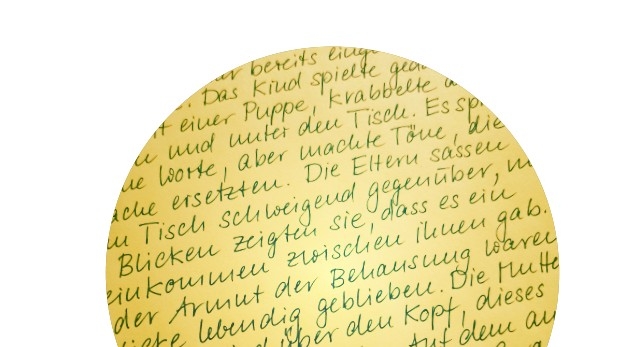 bereits
Das Kind spielte
einer Puppe, krabbelte
und unter den Tisch. Es
Worte, aber machte Töne, die
ersetzten. Die Eltern sassen
Tisch schweigend gegenüber,
Blicken zeigten sie, dass es ein
einkommen zwischen ihnen gab.
der Armut der Behausung waren
lebendig geblieben. Die
über den Kopf, dieses
Auf dem